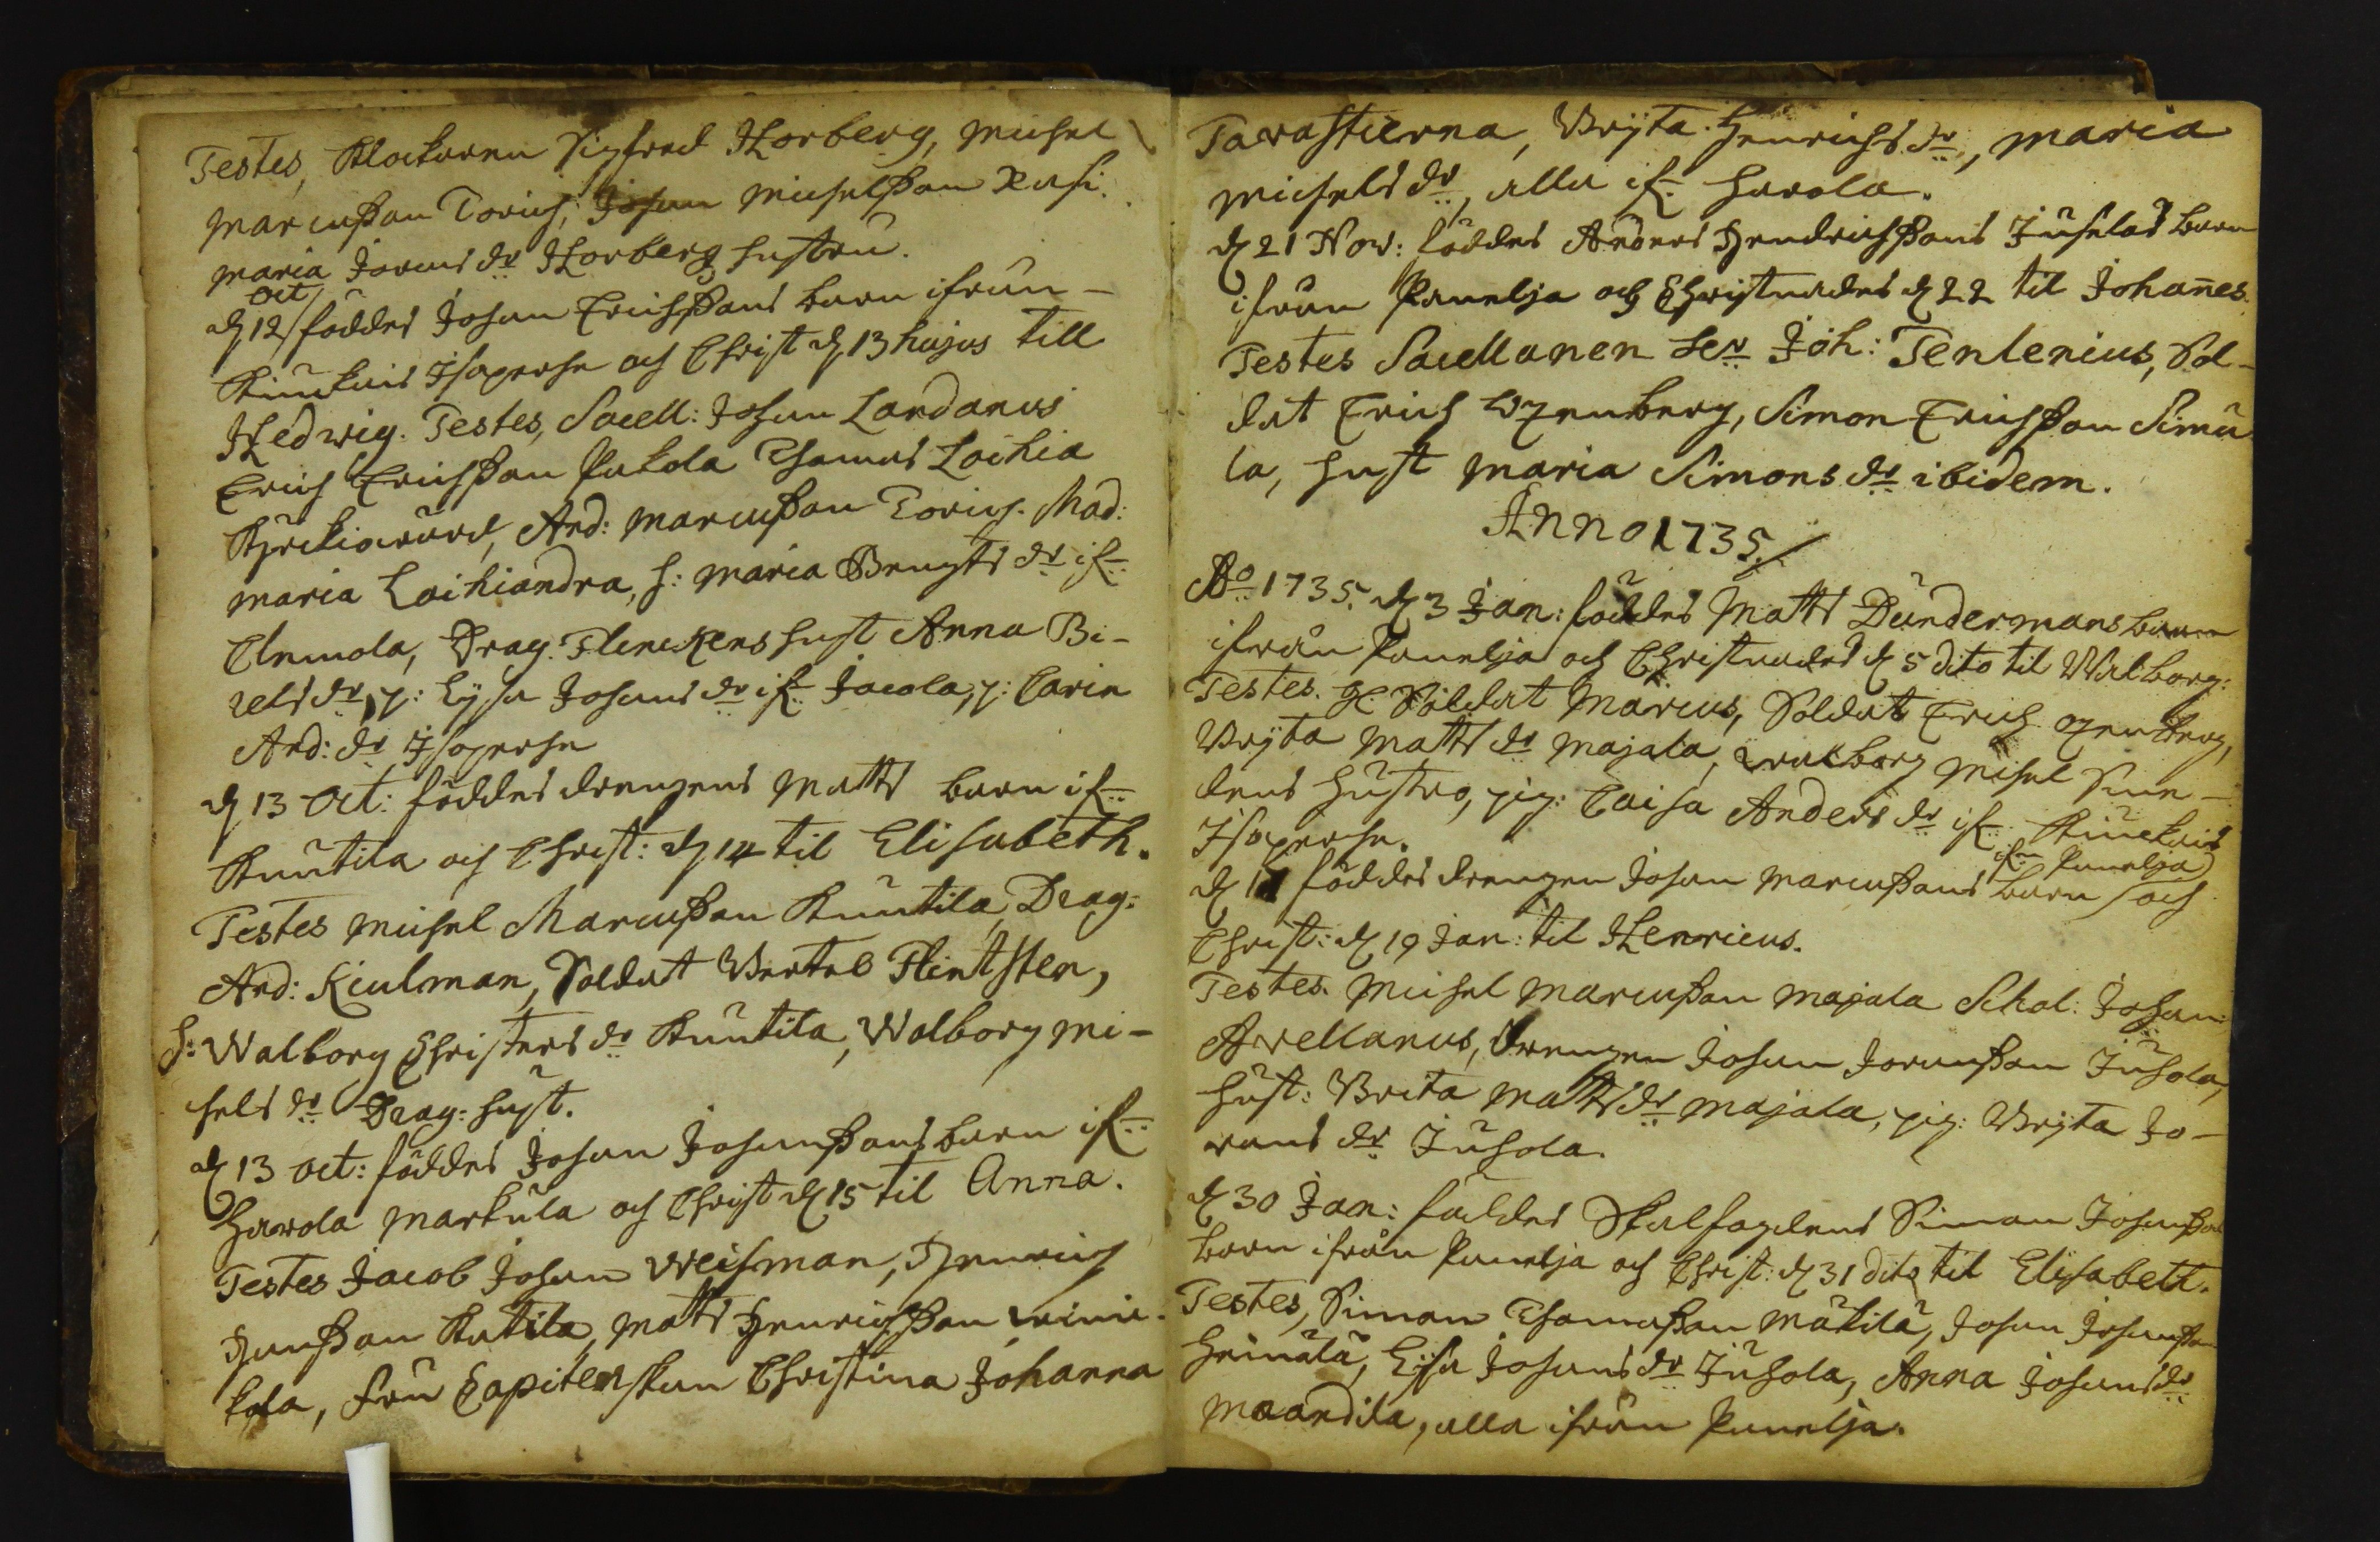 Testes, Klockaren Sigfred Horberg, Michel
Marcusson Torick, Johan Michelsson Xasi.
Maria Jörans dr Horberg hustru.
Oct
d 12 föddes Johan Erichssons barn ifrån
Kiukais Isoperhe och Christ d 13 hujus till
Hedwig. Testes, Sacell: Johan Lardanus
Erich Erichsson Pukola Thomas Laihia
And: Marcusson Torick. Mad:
Maria Laihiandra, h: Maria Bengts dr ifr:
Elemola, Drag. Flinckens hust Anna Bi-
rels dr, p: Lisa Johans dr ifr: Jacola, p: Carin
And: dr Isoperhe
d 13 Oct: föddes drengens Matts barn ifr:
Knutila och Christ: d 14 til Elisabeth.
Testes Michel Marcusson Knutila, Drag:
And: Kiulman, Soldat Bertel Flintsten,
h: Walborg Christers dr Knutila, Walborg Mi-
hels dr Drag: hust.
d 13 Oct: föddes Johan Johanssons barn ifr:
Harola Markula och Christ d 15 til Anna.
Testes Jacob Johan Weisman, Henrich
Hansson Katila, Matts Henrichsson Winic-
kala, fru Capitenskan Christina Johanna
Tavastierna, Brijta Henrichs dr, Maria
Michels dr, alla ifr: Harola.
d 21 Nov: föddes Anders Hendrichssons Juselas barn
ifrån Panelja och Christnades d 22 til Johannes.
Testes Sacellanen Her Joh: Tenlenius, Sol-
dat Erich Ozenberg, Simon Erichsson Simu
la, hust Maria Simons dr ibidem.
Anno 1735.
Ao 1735. d 3 Jan: föddes Matts Dundermans barn
ifrån Panelja och Christnades d 5 dito til Walborg:
Testes. Soldat Marcus, Soldat Erich Ozenberg,
Brijta Matts dr Majala, Walborg Michel
dens hustro, pig: Caisa Anders dr ifr: Kiuckais
Isoperhe.
ifr: Panelja
d 17 föddes drengen Johan Marcussons barn och
Christ: d 19 Jan: til Henricus.
Testes. Michel Marcusson Majala Schol: Johan
Avellanus, Drengen Johan Joransson Juhola,
hust: Brita Matts dr Majala, pig: Brijta Jo-
rans dr Juhola.
d 30 Jan: föddes Skalfogdens Simon Johansson
barn ifrån Panelja och Christ: d 31 dito til Elisabeth.
Testes, Simon Thomasson Mäkilä, Johan Johansson
Heinälä, Lisa Johans dr Juhola, Anna Johans dr
Maandila, alla ifrån Panelja.